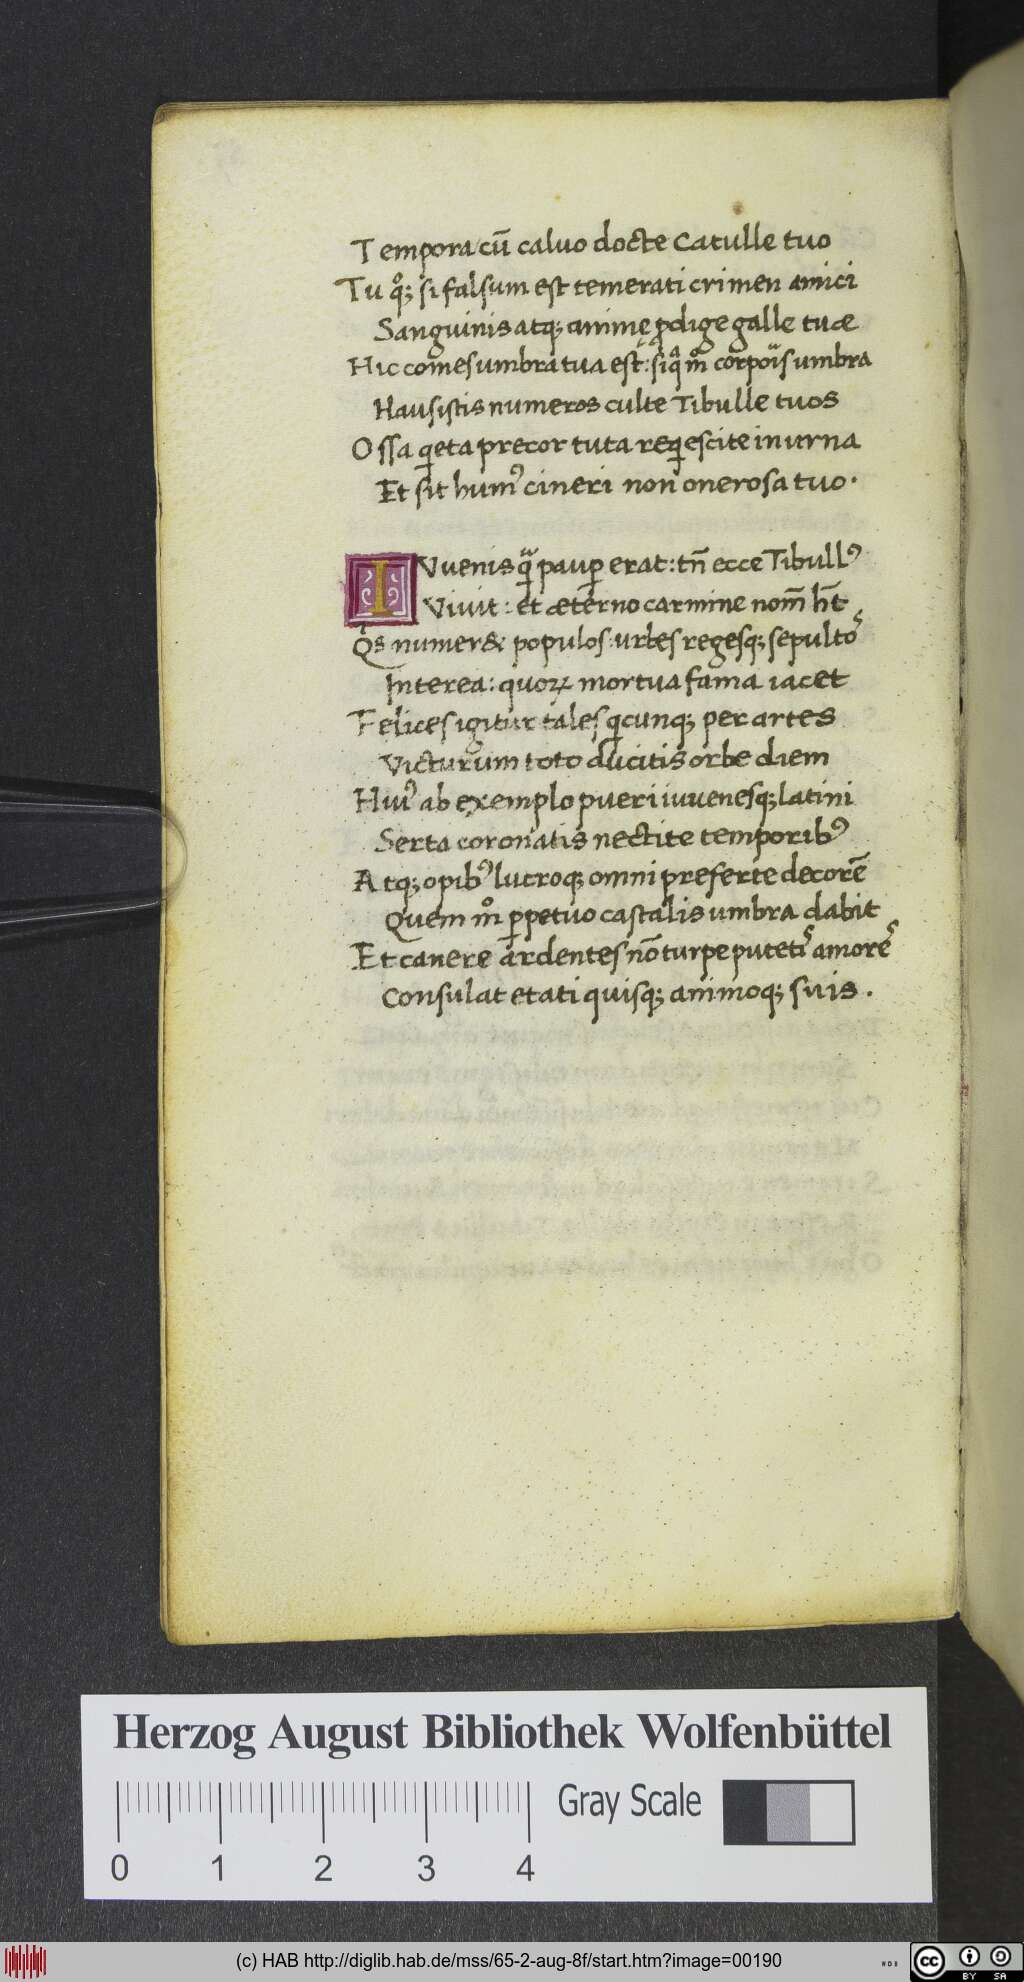 Tempora cū caluo docte Catulle tuo
Tu qͦꝫ si falsum est temerati crimen amici
Sanguinis atqꝫ animę ꝓdige galle tuæ
Hic comes umbra tua est: siqͣ mͦ corpoīs umbra
Hausistis numeros culte Tibulle tuos
Ossa qeta precor tuta reqescite in urna
Et sit humꝰ cineri non onerosa tuo.
IVuenis pauꝑ erat: tn̄ ecce Tibullꝰ
Viuit: et æterno carmine nom̄ ht̄
Qͦs numer& populos: urbes regesqꝫ sepultoꝰ
Interea: quoꝝ mortua fama iacet
Felices igitur tales qcunqꝫ per artes
Victurum toto ducitis orbe diem
Huiꝰ ab exemplo pueri iuuenesqꝫ latini
Serta coronatis nectite temporibꝰ
Atqꝫ opibꝰ lucroqꝫ omni preferte decorē
Quem mͦ ꝑpetuo castalis umbra dabit
Et canere ardentes nō turpe putetꝰ amorēꝰ
Consulat etati quisqꝫ animoqꝫ suis.
Herzog August Bibliothek Wolfenbüttel
Gray Scale
0 1 2 3 4
(c) HAB http://diglib.hab.de/mss/65-2-aug-8f/start.htm?image=00190
cc BY SA